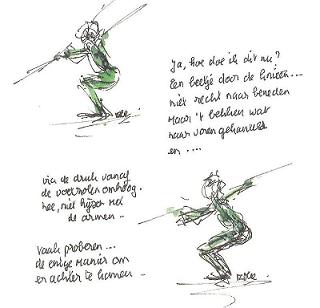 Ja, hoe doe ik dit nu?
Een beetje door de knieën...
niet recht naar beneden
maar 't bekken wat
naar voren gekanteld
en ....
via de druk vanaf
de voetzolen omhoog.
nee, niet hijsen met
de armen -
vaak proberen...
de enige manier om
er achter te komen -